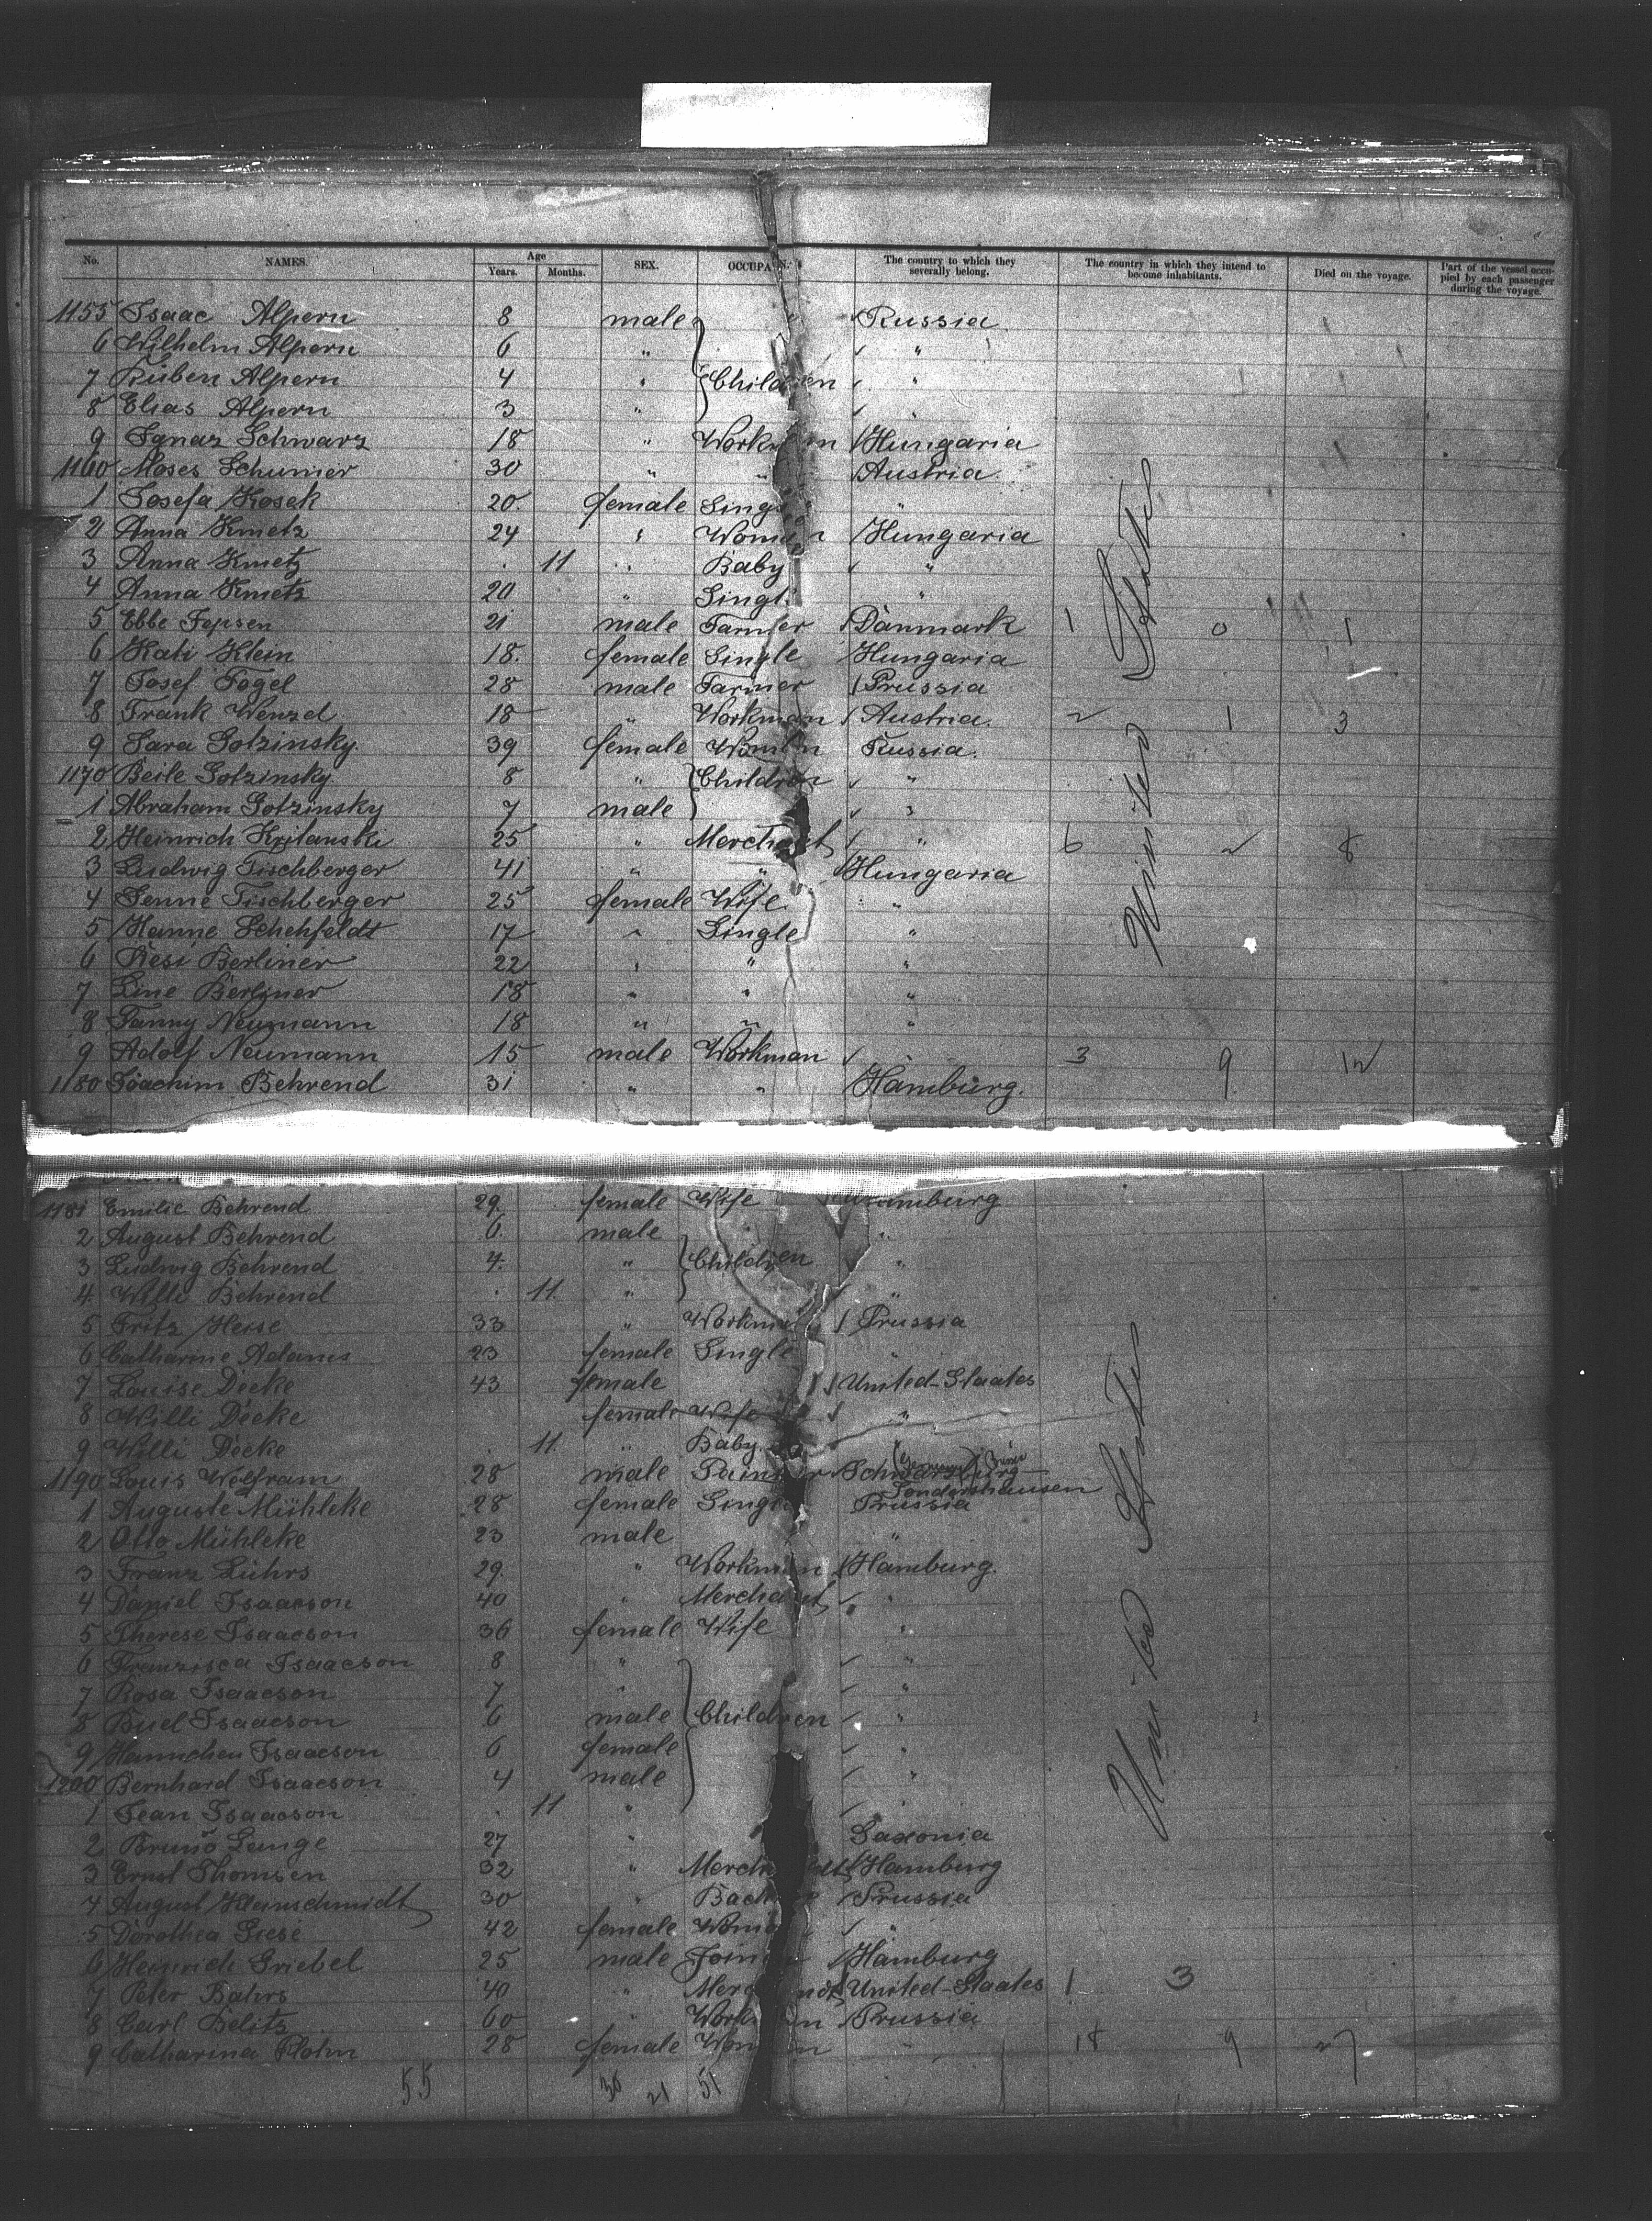 No. NAMES. Age Years. Months. SEX. OCCUPA N. The country to which they severally belong. The country in which they intend to become inhabitants. Died on the voyage. Part of the vessel occupied by each passenger during the voyage.
1155 Isaac Alpern 8 male " Russia
6 Wilhelm Alpern 6 " "
7 Ruben Alpern 4 " Children "
8 Elias Alpern 3 " "
9 Ignaz Schwarz 18 " Workman Hungaria
1160 Moses Schumer 30 " " Austria
1 Josefa Kosek 20. female Single "
2 Anna Kmetz 24 " Woman Hungaria
3 Anna Kmetz . 11 " Baby "
4 Anna Kmetz 20 " Single "
5 Ebbe Jepsen 21 male Farmer Danmark 1 0 1
6 Kati Klein 18. female Single Hungaria
7 Josef Fogel 28 male Farmer Prussia
8 Frank Wenzel 18 " Workman Austria. 2 1 3
9 Sara Gotzinsky. 39 female Woman Russia.
1170 Beile Gotzinsky. 8 " Children "
1 Abraham Gotzinsky 7 male "
2 Heinrich 25 " Merchant " 6 2 8
3 Ludwig Fischberger 41 " " Hungaria
4 Jenne Fischberger 25 female Wife "
5 Hanne Schehfeldt 17 " Single "
6 Resi Berliner 22 " " "
7 Line Berliner 18 " " "
8 Fanny Neumann 18 " " "
9 Adolf Neumann 15 male Workman 3 9 12
1180 Joachim Behrend 31 " " Hamburg.
United States
1181 Emilie Behrend 29 female Wife Hamburg
2 August Behrend 6. male "
3 Ludwig Behrend 4. " Children "
4. Willi Behrend . 11. " "
5 Fritz Heise 33 " Workman Prussia
6 Catharine Adams 23 female Single "
7 Louise Decke 43 female United-Staates
8 Willi Decke female Wife "
9 Willi Decke . 11. " Baby
1190 Louis Wolfram 28 male Painter Schwarzburg-Sondershausen
1 Auguste Mühleke 28 female Single Prussia
2 Otto Mühleke 23 male "
3 Franz Lührs 29. " Workman Hamburg.
4 Daniel Isaacson 40 " Merchant "
5 Therese Isaacson 36 female Wife "
6 Franzisca Isaacson 8 " "
7 Rosa Isaacson 7 " "
8 Buel Isaacson 6 male Children "
9 Hannchen Isaacson 6 female "
1200 Bernhard Isaacson 4 male "
1 Jean Isaacson . 11 "
2 Bruno Lange 27 " Saxonia
3 Ernst Thomsen 32 " Merchant Hamburg
4 August Kleinschmidt 30 " Prussia
5 Dorothea Giese 42 female Woman "
6 Heinrich Griebel 25 male Joiner Hamburg
7 Peter Bahrs 40 " Merchandt United-Staates 1 3
8 Carl Delitz 60 " Workman Prussia
9 Catharina Plohn 28 female Woman " 18 9 27
United States
55 30 21 51